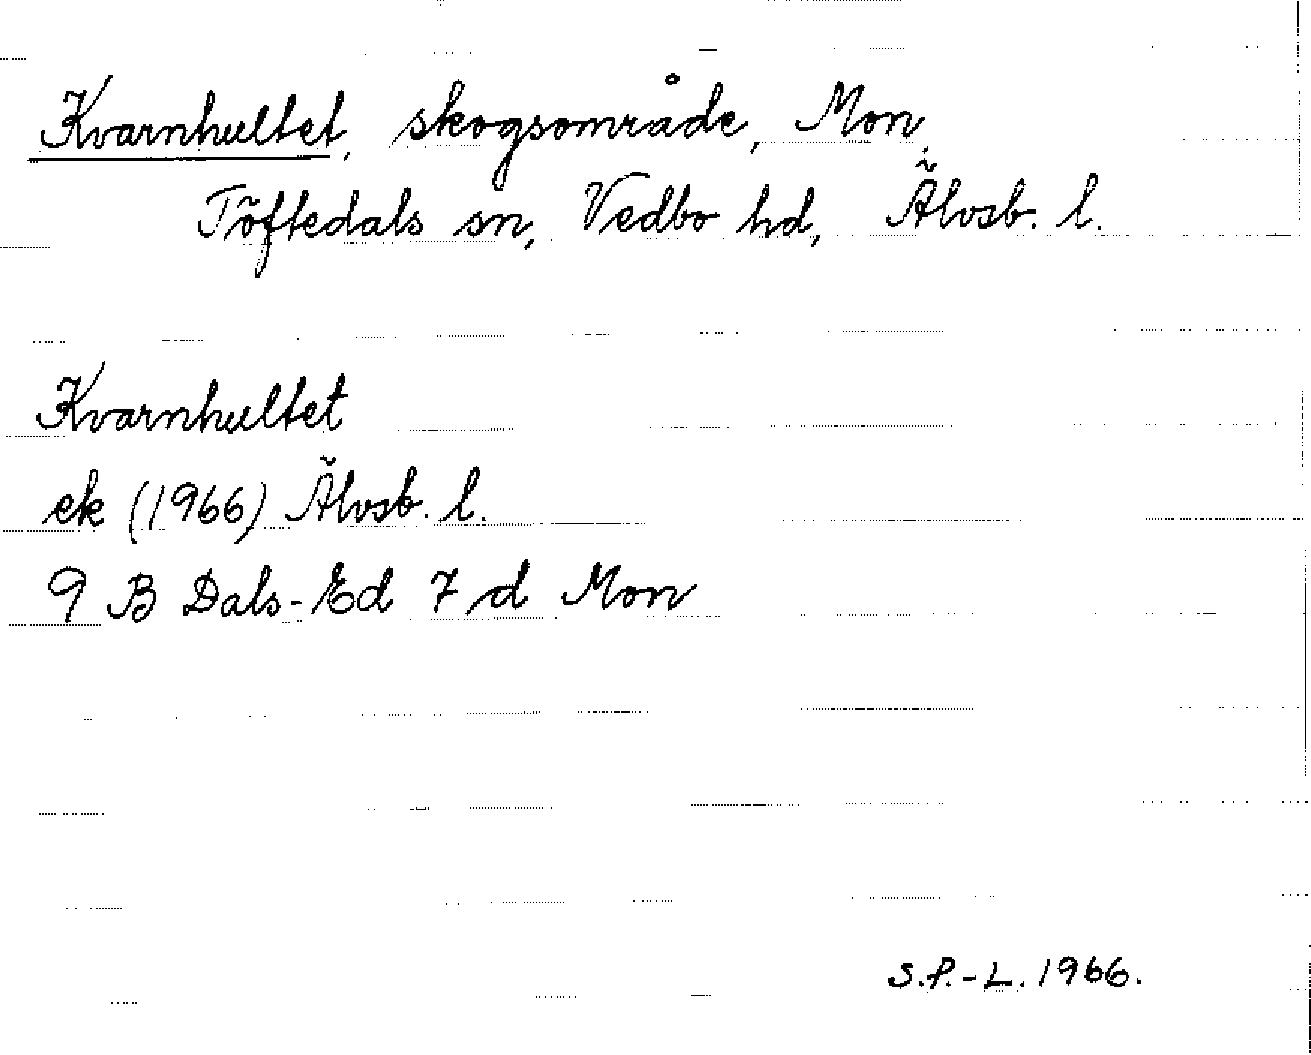 Kvarnhultet, skogsområde, Mon,
Töftedals sn, Vedbo hd, Älvsb. l.
Kvarnhultet
ek (1966) Älvsb. l.
9 B Dals-Ed 7 d Mon
S.P.-L. 1966.